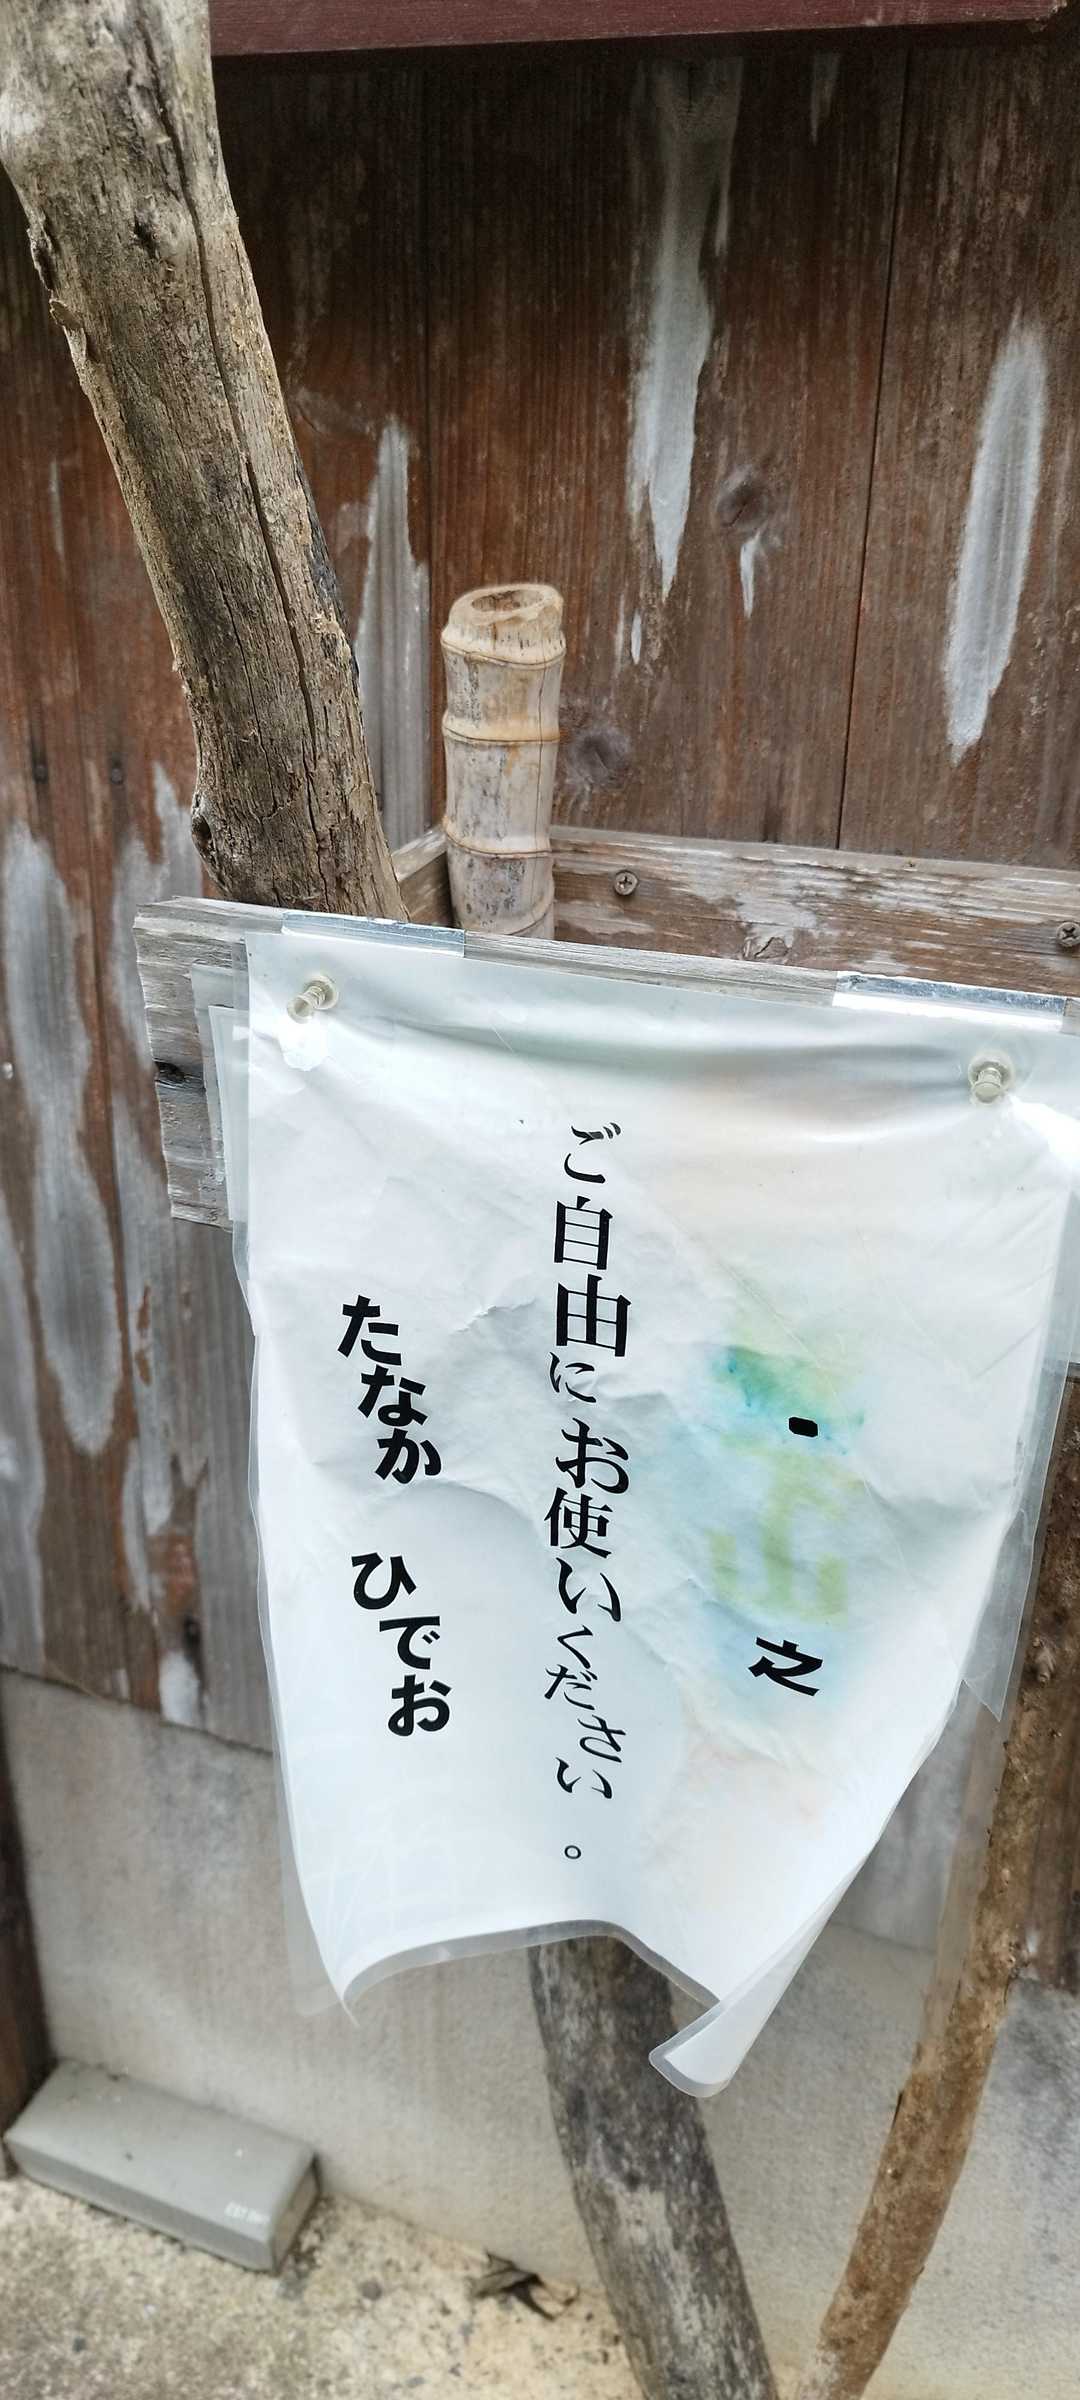 ご自由にお使いください。
たなか ひでお